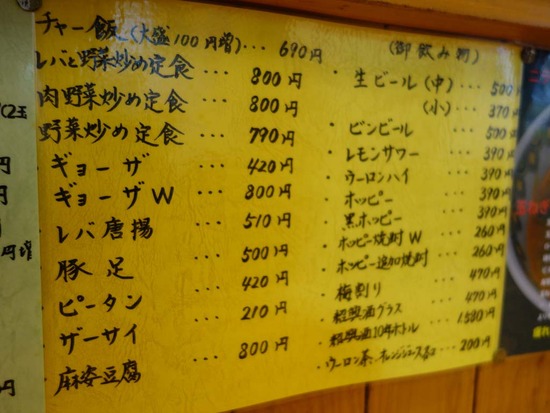 チャー飯(大盛100円増)… 690円
レバと野菜炒め定食 … 800円
肉野菜炒め定食 … 800円
野菜炒め定食 … 790円
ギョーザ … 420円
ギョーザW … 800円
レバ唐揚 … 510円
豚足 … 500円
ピータン … 420円
ザーサイ … 210円
麻婆豆腐 … 800円
(御飲み物)
・生ビール(中) … 500円
(小) … 370円
・ビンビール … 500円
・レモンサワー … 390円
・ウーロンハイ … 390円
・ホッピー … 390円
・黒ホッピー … 390円
・ホッピー焼酎W … 260円
・ホッピー追加焼酎 … 260円
・梅割り … 470円
・紹興酒グラス … 470円
・紹興酒10年ボトル … 1,580円
・ウーロン茶、オレンジジュース … 200円